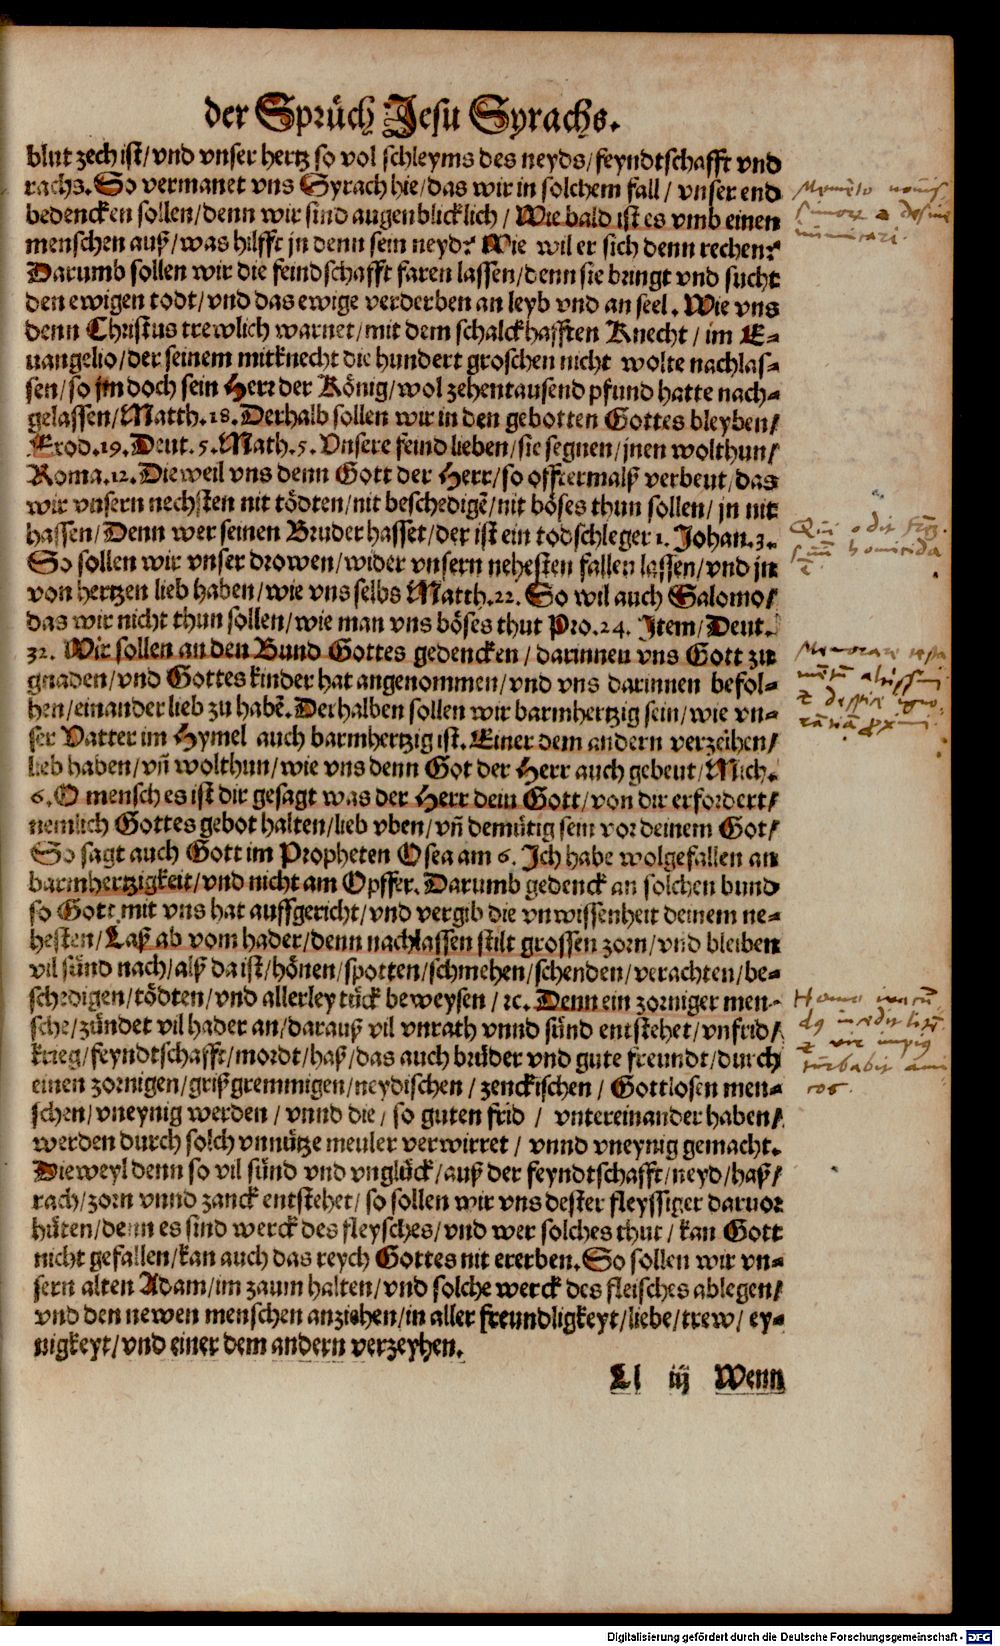 der Sprüch Jesu Syrachs.
blut zech ist/vnd vnser hertz so vol schleyms des neyds/feyndtschafft vnd
rachs. So vermanet vns Syrach hie/das wir in solchem fall/vnser end
bedencken sollen/denn wir sind augenblicklich/Wie bald ist es vmb einen
menschen auß/was hilfft jn denn sein neyd? Wie wil er sich denn rechen?
Darumb sollen wir die feindschafft faren lassen/denn sie bringt vnd sucht
den ewigen todt/vnd das ewige verderben an leyb vnd an seel. Wie vns
denn Christus trewlich warnet/mit dem schalckhafften Knecht/im E-
uangelio/der seinem mitknecht die hundert groschen nicht wolte nachlas-
sen/so jm doch sein Herr der König/wol zehentausend pfund hatte nach-
gelassen/Matth.18. Derhalb sollen wir in den gebotten Gottes bleyben/
Exod.19. Deut.5. Math.5. Vnsere feind lieben/sie segnen/jnen wolthun/
Roma.12. Dieweil vns denn Gott der Herr/so offtermalß verbeut/das
wir vnsern nechsten nit tödten/nit beschedigẽ/nit böses thun sollen/jn nit
hassen/Denn wer seinen Bruder hasset/der ist ein todschleger 1. Johan.3.
So sollen wir vnser drowen/wider vnsern nehesten fallen lassen/vnd jn
von hertzen lieb haben/wie vns selbs Matth.22. So wil auch Salomo/
das wir nicht thun sollen/wie man vns böses thut Pro.24. Item/Deut.
32. Wir sollen an den Bund Gottes gedencken/darinnen vns Gott zu
gnaden/vnd Gottes kinder hat angenommen/vnd vns darinnen befol-
hen/einander lieb zu habẽ. Derhalben sollen wir barmhertzig sein/wie vn-
ser Vatter im Hymel auch barmhertzig ist. Einer dem andern verzeihen/
lieb haben/vñ wolthun/wie vns denn Got der Herr auch gebeut/Mich.
6. O mensch es ist dir gesagt was der Herr dein Gott/von dir erfordert/
nemlich Gottes gebot halten/lieb vben/vñ demütig sein vor deinem Got/
So sagt auch Gott im Propheten Osea am 6. Ich habe wolgefallen an
barmhertzigkeit/vnd nicht am Opffer. Darumb gedenck an solchen bund
so Gott mit vns hat auffgericht/vnd vergib die vnwissenheit deinem ne-
hesten/Laß ab vom hader/denn nachlassen stilt grossen zorn/vnd bleiben
vil sünd nach/alß da ist/hönen/spotten/schmehen/schenden/verachten/be-
schedigen/tödten/vnd allerley tück beweysen/ꝛc. Denn ein zorniger men-
sche/zündet vil hader an/darauß vil vnrath vnnd sünd entstehet/vnfrid/
krieg/feyndtschafft/mordt/haß/das auch brüder vnd gute freundt/durch
einen zornigen/grißgremmigen/neydischen/zenckischen/Gottlosen men-
schen/vneynig werden/vnnd die/so guten frid/vntereinander haben/
werden durch solch vnnütze meuler verwirret/vnnd vneynig gemacht.
Dieweyl denn so vil sünd vnd vnglück/auß der feyndtschafft/neyd/haß/
rach/zorn vnnd zanck entstehet/so sollen wir vns dester fleyssiger daruor
hüten/denn es sind werck des fleysches/vnd wer solches thut/kan Gott
nicht gefallen/kan auch das reych Gottes nit ererben. So sollen wir vn-
sern alten Adam/im zaum halten/vnd solche werck des fleisches ablegen/
vnd den newen menschen anziehen/in aller freundligkeyt/liebe/trew/ey-
nigkeyt/vnd einer dem andern verzeyhen.
Ll iij Wenn
Memẽto nouis
simorũ & desine
inimicari.
Qui odit frẽ
suũ homicida
ẽ
Memorare testa
mẽtũ altissimi
& despice igno
rãtiã proximi
Homo iracũ
dus incẽdit litẽ
& vir impius
turbabit ami
cos.
Digitalisierung gefördert durch die Deutsche Forschungsgemeinschaft - DFG